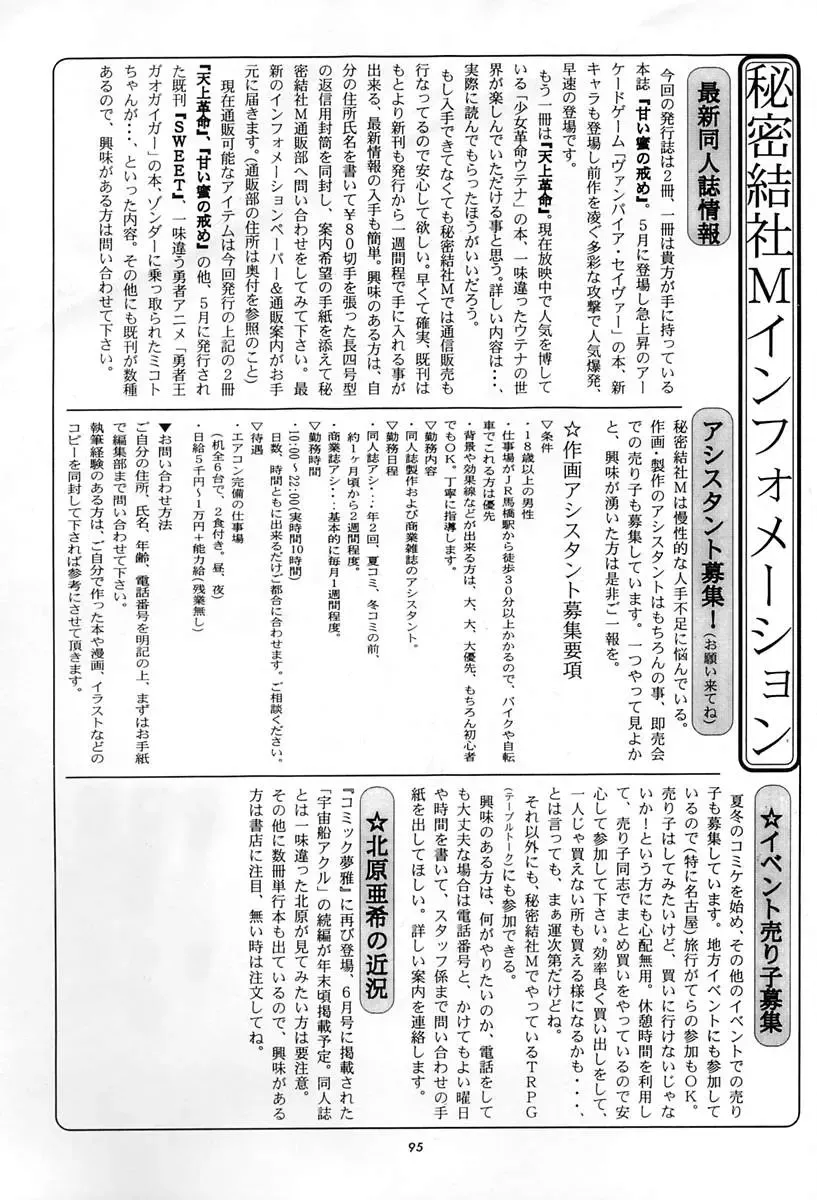 秘密結社Mインフォメーション
最新同人誌情報
今回の発行誌は2冊、一冊は貴方が手に持っている
本誌『甘い蜜の戒め』。5月に登場し急上昇のアー
ケードゲーム「ヴァンパイア・セイヴァー」の本、新
キャラも登場し前作を凌ぐ多彩な攻撃で人気爆発、
早速の登場です。
もう一冊は『天上革命』。現在放映中で人気を博して
いる「少女革命ウテナ」の本、一味違ったウテナの世
界が楽しんでいただける事と思う。詳しい内容は・・、
実際に読んでもらったほうがいいだろう。
もし入手できてなくても秘密結社Mでは通信販売も
行なってるので安心して欲しい。早くて確実、既刊は
もとより新刊も発行から一週間程で手に入れる事が
出来る、最新情報の入手も簡単。興味のある方は、自
分の住所氏名を書いて¥80切手を張った長四号型
の返信用封筒を同封し、案内希望の手紙を添えて秘
密結社M通販部へ問い合わせをしてみて下さい。最
新のインフォメーションペーパー&通販案内がお手
元に届きます。(通販部の住所は奥付を参照のこと)
現在通販可能なアイテムは今回発行の上記の2冊
『天上革命』、『甘い蜜の戒め』の他、5月に発行され
た既刊『SWEET』、一味違う勇者アニメ「勇者王
ガオガイガー」の本、ゾンダーに乗っ取られたミコト
ちゃんが・・、といった内容。その他にも既刊が数種
あるので、興味がある方は問い合わせて下さい。
アシスタント募集!(お願い来てね)
秘密結社Mは慢性的な人手不足に悩んでいる。
作画・製作のアシスタントはもちろんの事、即売会
での売り子も募集しています。一つやって見よか
と、興味が湧いた方は是非ご一報を。
☆作画アシスタント募集要項
▽条件
・18歳以上の男性
・仕事場がJR馬橋駅から徒歩30分以上かかるので、バイクや自転
車でこれる方は優先
・背景や効果線などが出来る方は、大、大、大優先、もちろん初心者
でもOK。丁寧に指導します。
▽勤務内容
・同人誌製作および商業雑誌のアシスタント。
▽勤務日程
・同人誌アシ・・・年2回、夏コミ、冬コミの前、
約1ヶ月頃から2週間程度。
・商業誌アシ・・・基本的に毎月1週間程度。
▽勤務時間
・10:00~22:00(実時間10時間)
日数、時間ともに出来るだけご都合に合わせます。ご相談ください。
▽待遇
・エアコン完備の仕事場
(机全6台で、2食付き。昼、夜)
・日給5千円~1万円+能力給(残業無し)
▼お問い合わせ方法
ご自分の住所、氏名、年齢、電話番号を明記の上、まずはお手紙
で編集部まで問い合わせて下さい。
執筆経験のある方は、ご自分で作った本や漫画、イラストなどの
コピーを同封して下されば参考にさせて頂きます。
☆イベント売り子募集
夏冬のコミケを始め、その他のイベントでの売り
子も募集しています。地方イベントにも参加して
いるので(特に名古屋)旅行がてらの参加もOK。
売り子はしてみたいけど、買いに行けないじゃな
いか!という方にも心配無用。休憩時間を利用し
て、売り子同志でまとめ買いをやっているので安
心して参加して下さい。効率良く買い出しをして、
一人じゃ買えない所も買える様になるかも・・・、
とは言っても、まぁ運次第だけどね。
それ以外にも、秘密結社MでやっているTRPG
(テーブルトーク)にも参加できる。
興味のある方は、何がやりたいのか、電話をして
も大丈夫な場合は電話番号と、かけてもよい曜日
や時間を書いて、スタッフ係まで問い合わせの手
紙を出してほしい。詳しい案内を連絡します。
☆北原亜希の近況
『コミック夢雅』に再び登場、6月号に掲載された
「宇宙船アクル」の続編が年末頃掲載予定。同人誌
とは一味違った北原が見てみたい方は要注意。
その他に数冊単行本も出ているので、興味がある
方は書店に注目、無い時は注文してね。
95